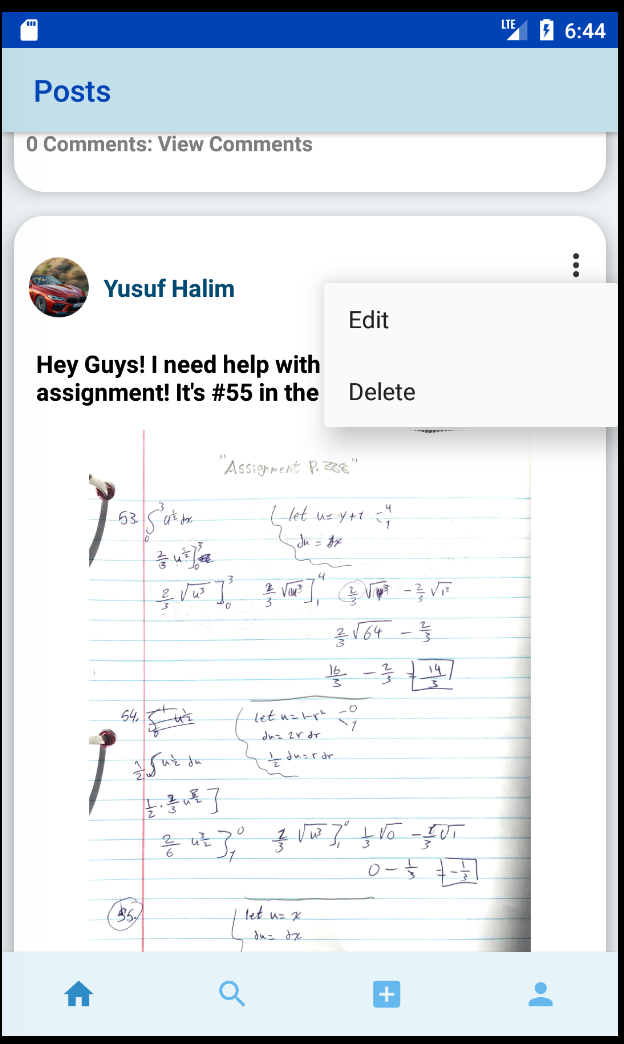 LTE 6:44
Posts
0 Comments: View Comments
Yusuf Halim
Edit
Hey Guys! I need help with
assignment! It's #55 in the
Delete
"Assignment P. 388"
53. ∫₀³ u^½ dx
let u = y+1 -4 1
du = dx
2/3 u^3/2 ]₀³
2/3 √u³ ]₀³ 2/3 √u³ ]₁⁴ 2/3 - 2/3 √1³
2/3 √64 - 2/3
16/3 - 2/3 = 14/3
54.
let u = 1-r² -0 1
du = 2r dr
½ du = r dr
½ ∫ u^½ du
½ · 2/3 u^3/2 ]
2/6 u^3/2 ]₁⁰ 1/3 √u³ ]₁⁰ 1/3 √0 - 1/3 √1
0 - 1/3 = -1/3
55.
let u = x
du = dx